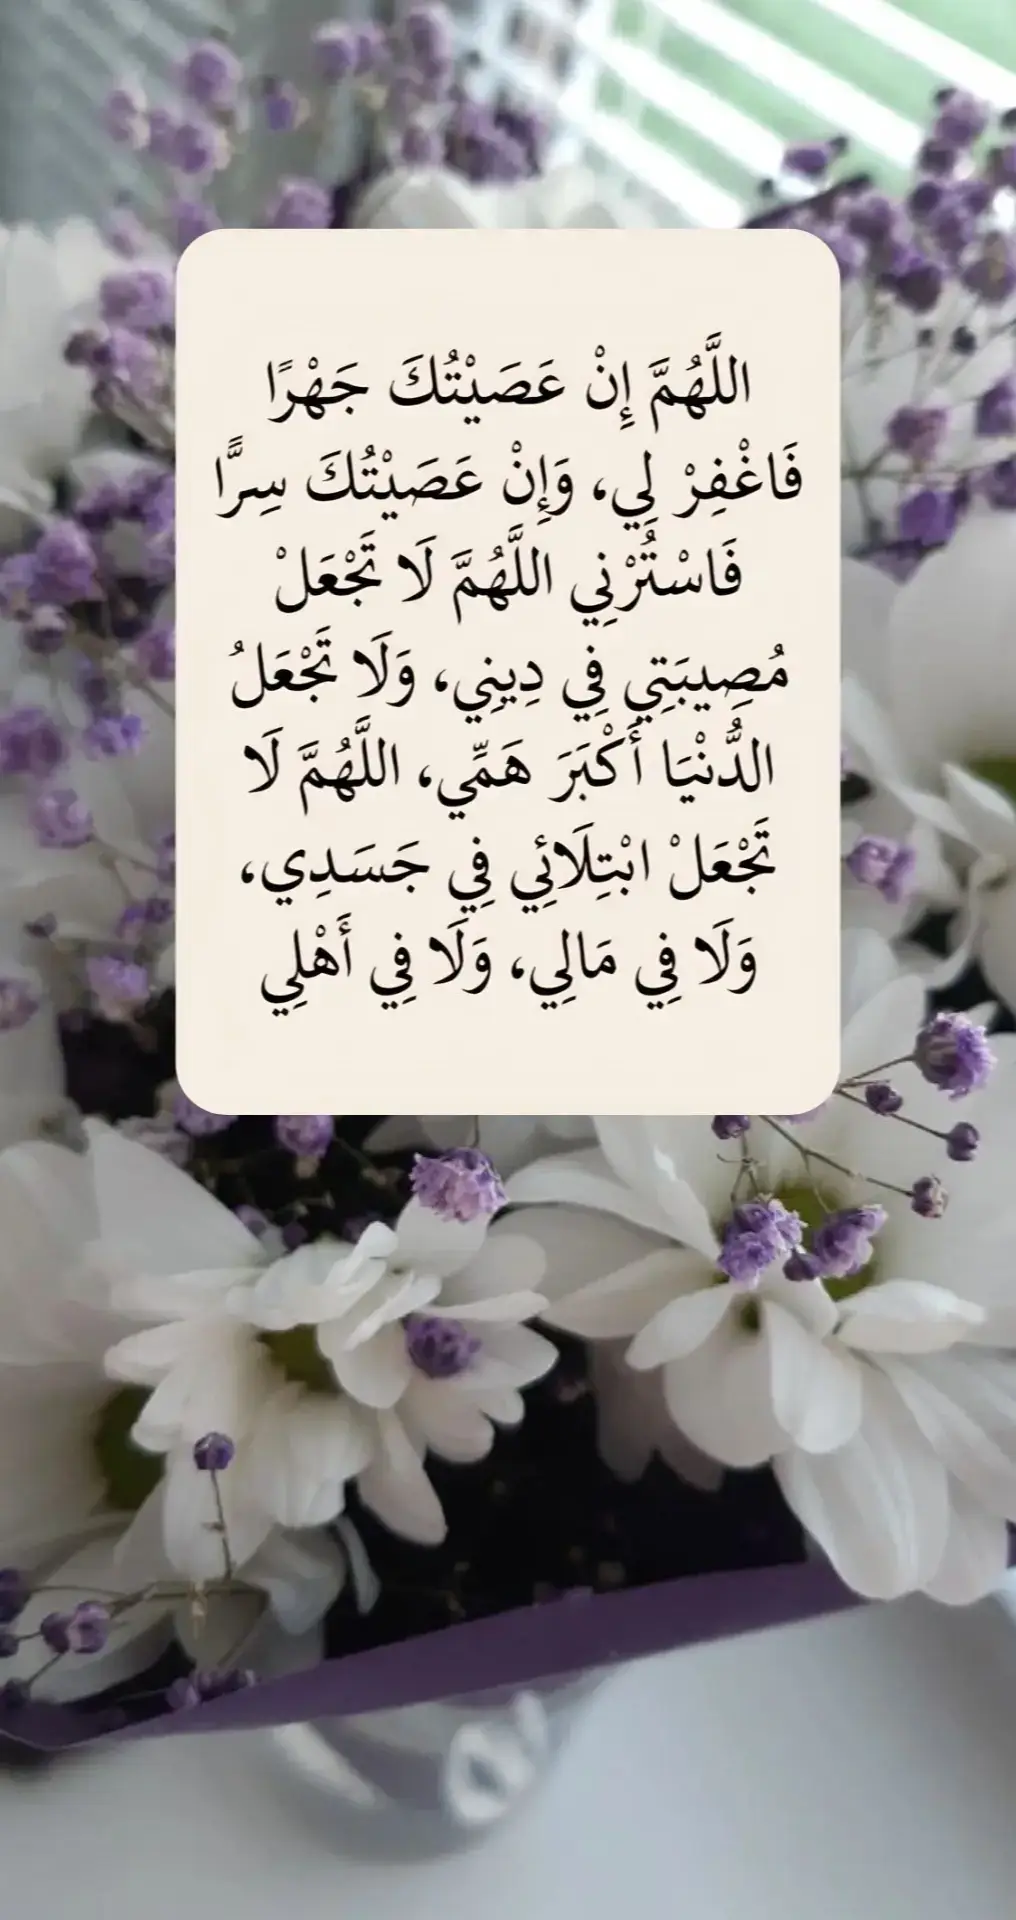 اللَّهُمَّ إِنْ عَصَيْتُكَ جَهْرًا
فَاغْفِرْ لِي، وَإِنْ عَصَيْتُكَ سِرًّا
فَاسْتُرْنِي اللَّهُمَّ لَا تَجْعَلْ
مُصِيبَتِي فِي دِينِي، وَلَا تَجْعَلُ
الدُّنْيَا أَكْبَرَ هَمِّي، اللَّهُمَّ لَا
تَجْعَلْ ابْتِلَائِي فِي جَسَدِي،
وَلَا فِي مَالِي، وَلَا فِي أَهْلِي